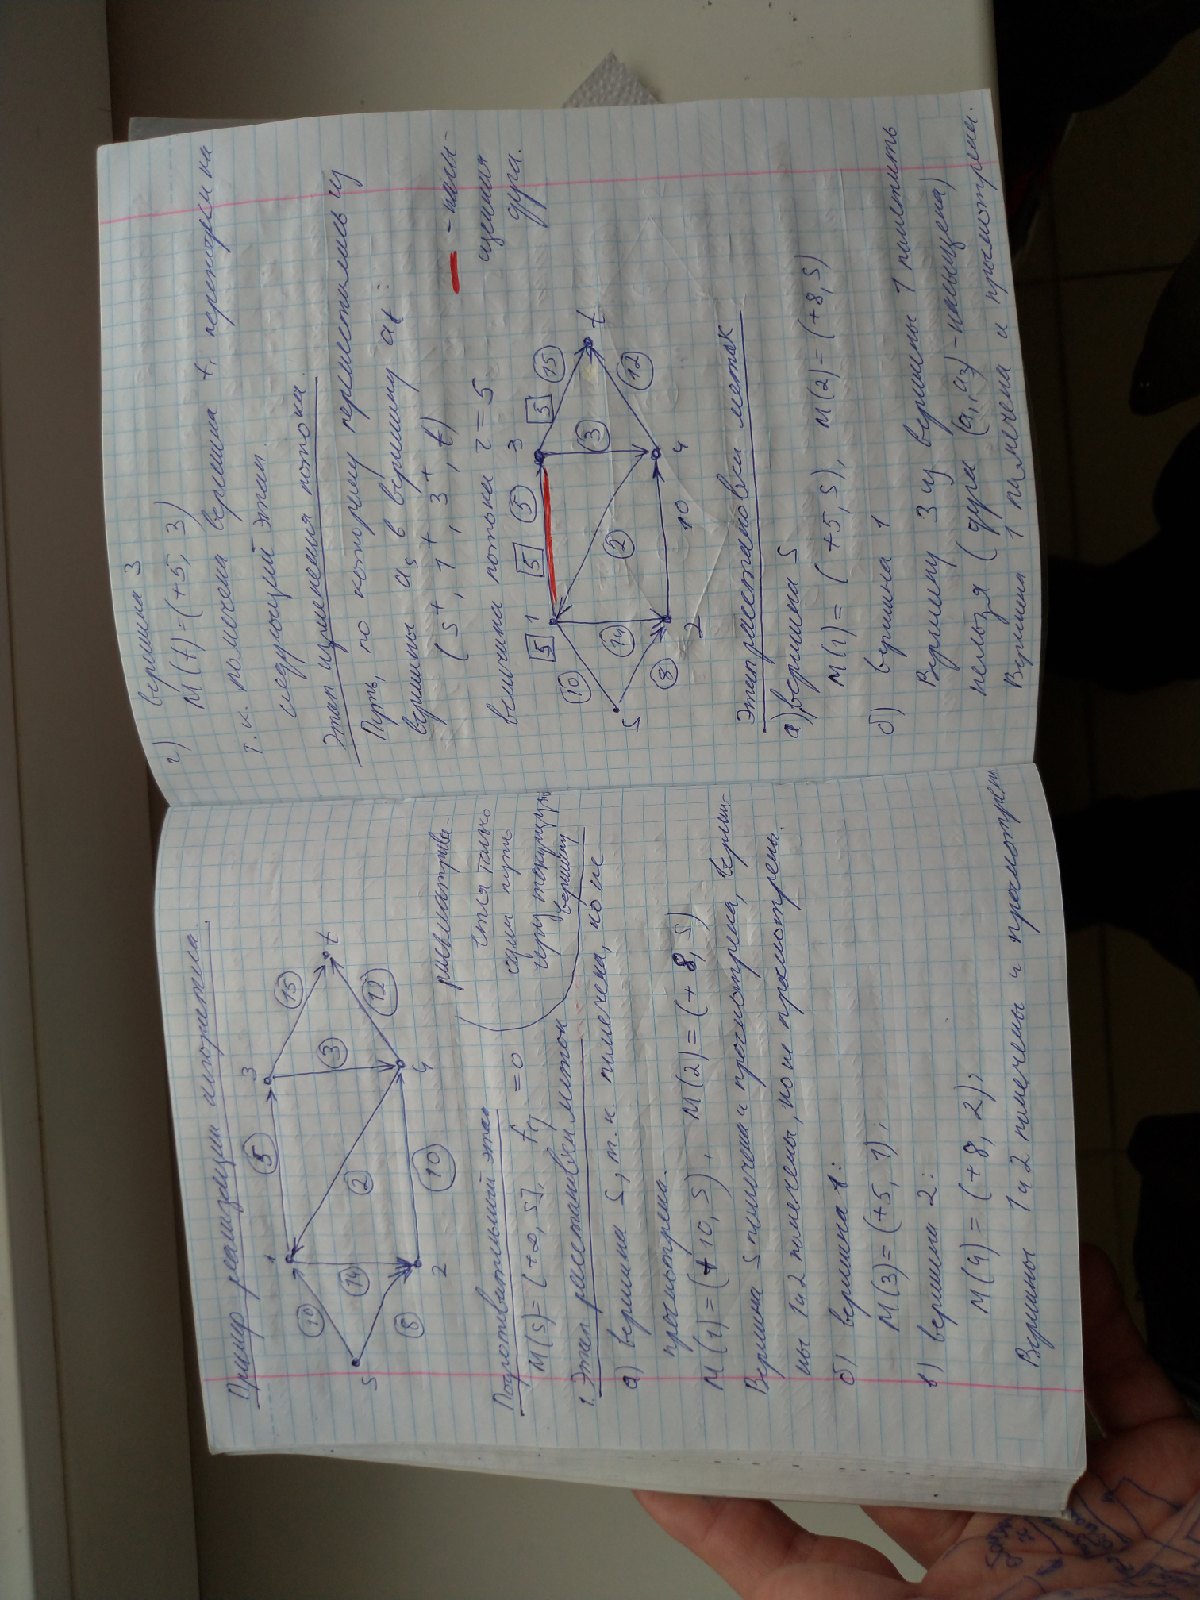 Пример реализации алгоритма.
1
5
3
10
15
14
2
3
t
S
8
12
2
10
4
рассматрива-
ется только
один путь
через текущую
вершину
Подготовительный этап
M(S)=[+∞, S], fij =0
1. Этап расстановки меток
а) вершина S, т.к помечена, но не
просмотрена.
M(1)=(+10, S), M(2)=(+8, S)
Вершина S помечена и просмотрена, верши-
ны 1 и 2 помечены, но не просмотрены.
б) вершина 1:
M(3)=(+5, 1);
в) вершина 2:
M(4)=(+8, 2);
Вершины 1 и 2 помечены и просмотрен
г) вершина 3
M(t)=(+5, 3)
т.к. помечена вершина t, переходим на
следующий этап.
Этап изменения потока.
Путь, по которому переместились из
вершины as в вершину at:
(S⁺, 1⁺, 3⁺, t)
- насы-
щенная
дуга.
величина потока r=5
5 1 5 5 3 5 15
10
14
2
3
t
S
8
12
2
10
4
Этап расстановки меток
а) вершина S
M(1)= (+5, S), M(2)=(+8, S)
б) вершина 1
Вершину 3 из вершины 1 пометить
нельзя (дуга (a1, a3) - насыщена)
Вершина 1 помечена и просмотрена.